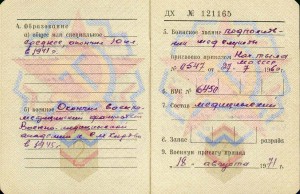 4. Образование
а) общее или специальное
среднее, окончил 10 кл
в 1941 г.
б) военное Окончил военно-
медицинский факультет
Военно-медицинской
академии С. М. Кирова
в 1945 г.
ДХ № 121165
5. Воинское звание подполков-
ник мед службы
Присвоено приказом Нач. тыла
МО СССР
№ 0547 1960 г.
6. ВУС № 6450
7. Состав медицинский
8. Запас разряда
9. Военный принял присягу
18 августа 1971 г.